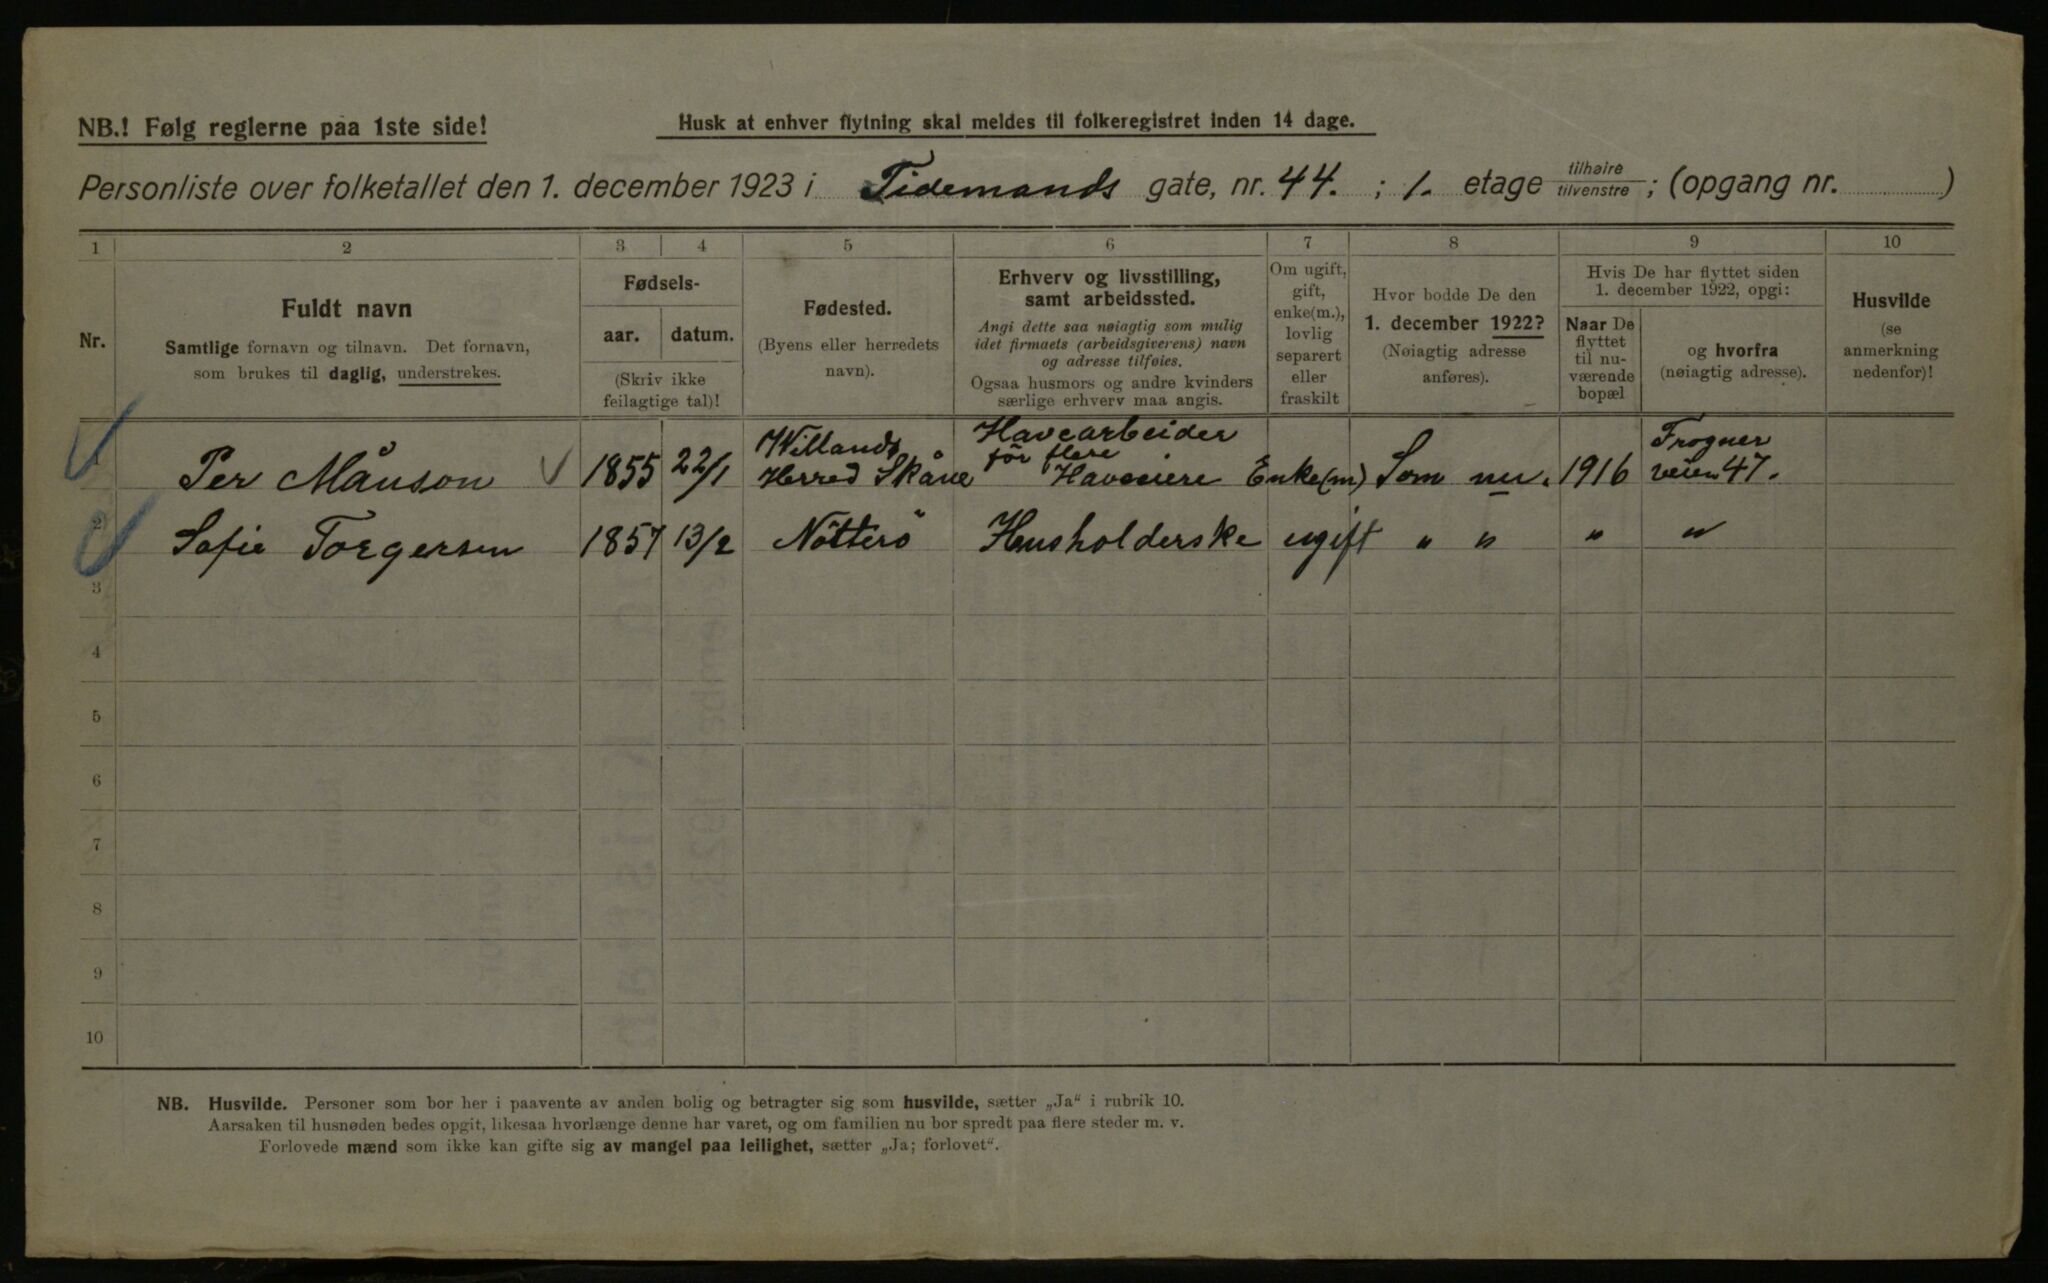 NB.! Følg reglerne paa 1ste side!
Husk at enhver flytning skal meldes til folkeregistret inden 14 dage.
Personliste over folketallet den 1. december 1923 i Tidemands gate, nr. 44. ; 1. etage tilhøire/tilvenstre ; (opgang nr. )
1 2 3 4 5 6 7 8 9 10
Nr.
Fuldt navn
Samtlige fornavn og tilnavn. Det fornavn,
som brukes til daglig, understrekes.
Fødsels-
aar. datum.
(Skriv ikke
feilagtige tal)!
Fødested.
(Byens eller herredets
navn).
Erhverv og livsstilling,
samt arbeidssted.
Angi dette saa nøiagtig som mulig
idet firmaets (arbeidsgiverens) navn
og adresse tilføies.
Ogsaa husmors og andre kvinders
særlige erhverv maa angis.
Om ugift,
gift,
enke(m.),
lovlig
separert
eller
fraskilt
Hvor bodde De den
1. december 1922?
(Nøiagtig adresse
anføres).
Hvis De har flyttet siden
1. december 1922, opgi:
Naar De
flyttet
til nu-
værende
bopæl
og hvorfra
(nøiagtig adresse).
Husvilde
(se
anmerkning
nedenfor)!
1 Per Månson 1855 22/1 Willands Herred Skåne Havearbeider för flere Haveeiere Enke(m) Som nu. 1916 Frogner veien 47.
2 Sofie Torgersen 1857 13/2 Nötterö Husholderske ugift " " " "
3
4
5
6
7
8
9
10
NB. Husvilde. Personer som bor her i paavente av anden bolig og betragter sig som husvilde, sætter „Ja“ i rubrik 10.
Aarsaken til husnøden bedes opgit, likesaa hvorlænge denne har varet, og om familien nu bor spredt paa flere steder m. v.
Forlovede mænd som ikke kan gifte sig av mangel paa leilighet, sætter „Ja; forlovet“.